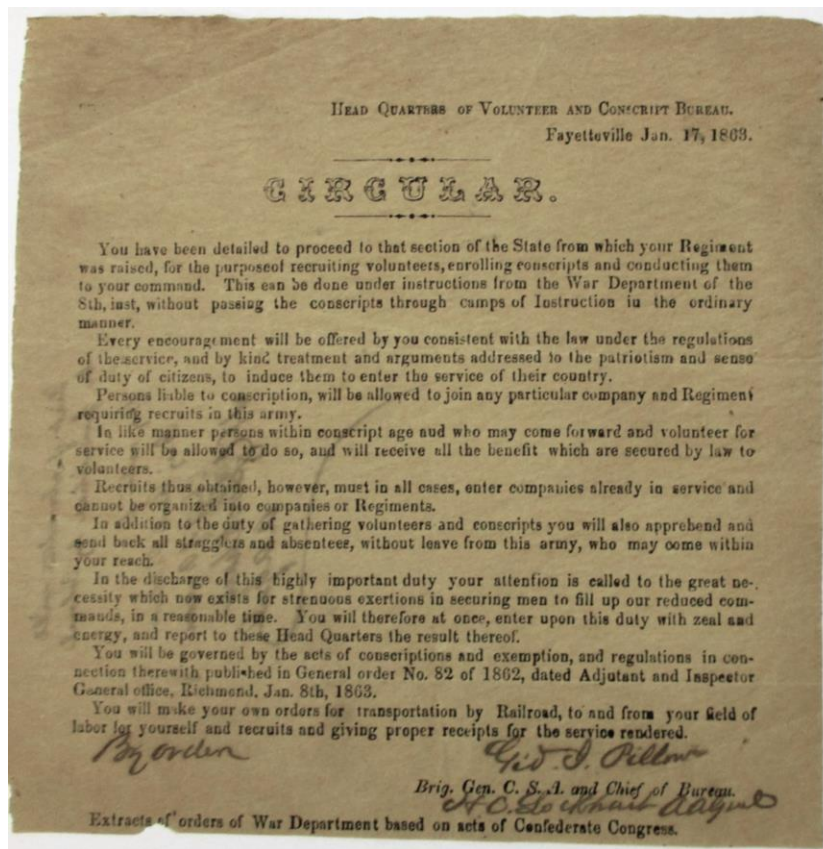 HEAD QUARTERS OF VOLUNTEER AND CONSCRIPT BUREAU.
Fayetteville Jan. 17, 1863.
CIRCULAR.
You have been detailed to proceed to that section of the State from which your Regiment
was raised, for the purposeof recruiting volunteers, enrolling conscripts and conducting them
to your command. This can be done under instructions from the War Department of the
8th, inst, without passing the conscripts through camps of Instruction in the ordinary
manner.
Every encouragement will be offered by you consistent with the law under the regulations
of the service, and by kind treatment and arguments addressed to the patriotism and sense
of duty of citizens, to induce them to enter the service of their country.
Persons liable to conscription, will be allowed to join any particular company and Regiment
requiring recruits in this army.
In like manner persons within conscript age aud who may come forward and volunteer for
service will be allowed to do so, and will receive all the benefit which are secured by law to
volunteers.
Recruits thus obtained, however, must in all cases, enter companies already in service and
cannot be organized into companies or Regiments.
In addition to the duty of gathering volunteers and conscripts you will also apprehend and
send back all stragglers and absentees, without leave from this army, who may come within
your reach.
In the discharge of this highly important duty your attention is called to the great ne-
cessity which now exists for strenuous exertions in securing men to fill up our reduced com-
mands, in a reasonable time. You will therefore at once, enter upon this duty with zeal and
energy, and report to these Head Quarters the result thereof.
You will be governed by the acts of conscriptions and exemption, and regulations in con-
nection therewith published in General order No. 82 of 1862, dated Adjutant and Inspector
General office, Richmond, Jan. 8th, 1863.
You will make your own orders for transportation by Railroad, to and from your field of
labor for yourself and recruits and giving proper receipts for the service rendered.
By order Gid. J. Pillow
Brig. Gen. C. S. A. and Chief of Bureau.
H. C. Lockhart
Extracts of orders of War Department based on acts of Confederate Congress.